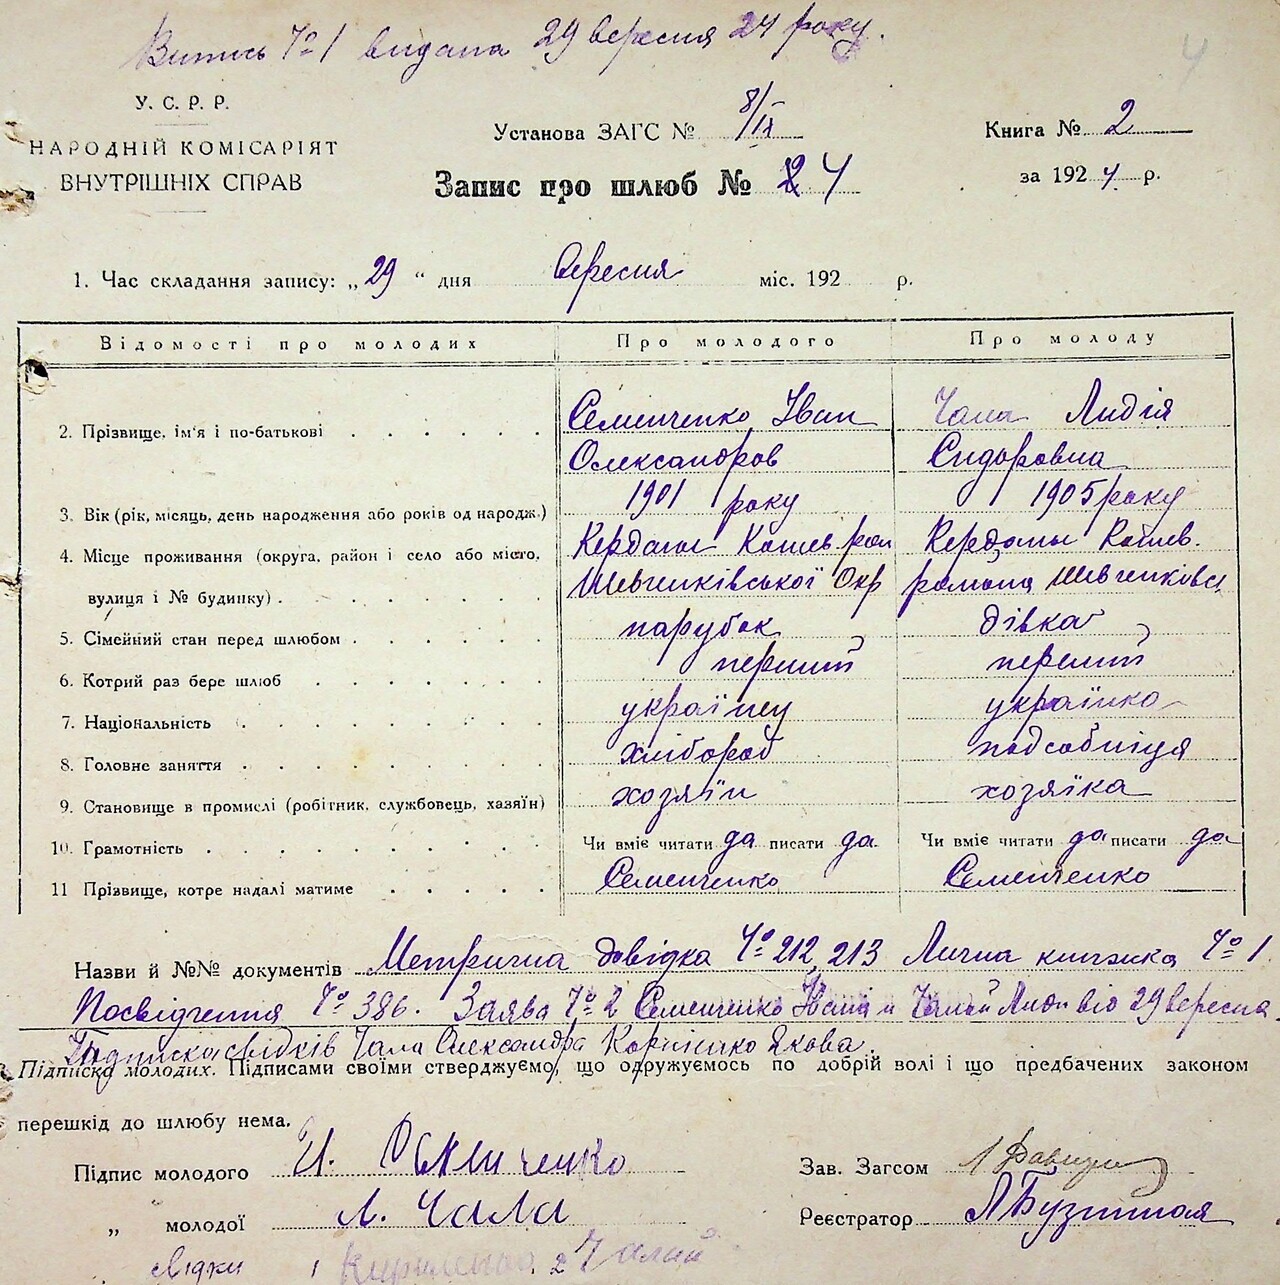 Випись № 1 видана 29 вересня 24 року.
4
У. С. Р. Р.
НАРОДНІЙ КОМІСАРІЯТ
ВНУТРІШНІХ СПРАВ
Установа ЗАГС № 8/IX
Книга № 2
Запис про шлюб № 24
за 1924 р.
1. Час складання запису: „29“ дня вересня міс. 192 р.
Відомості про молодих Про молодого Про молоду
2. Прізвище, ім'я і по-батькові Семенченко Іван Чала Лидія
Олександров Сидоровна
3. Вік (рік, місяць, день народження або років од народж.) 1901 року 1905 року
4. Місце проживання (округа, район і село або місто, Кердани Кошев. рай Кердани Кошев.
вулиця і № будинку). Шевченківської Окр района Шевченківс
5. Сімейний стан перед шлюбом парубок дівка
6. Котрий раз бере шлюб перший перший
7. Національність українец українка
8. Головне заняття хлібороб подсобніця
9. Становище в промислі (робітник, службовець, хазяїн) хозяїн хозяїка
10. Грамотність Чи вміє читати да писати да. Чи вміє читати да писати да
11 Прізвище, котре надалі матиме Семенченко Семенченко
Назви й №№ документів Метрична довідка № 212, 213 Лична книжка № 1.
Посвідчення № 386. Заява № 2 Семенченко Івана и Чалой Лиди від 29 вересня.
Підписка свідків Чала Олександра Корнієнко Якова.
Підписка молодих. Підписами своїми стверджуємо, що одружуємось по добрій волі і що предбачених законом
перешкід до шлюбу нема.
Підпис молодого И. Семенченко
Зав. Загсом
„ молодої Л. Чала
Реєстратор
свідки 1 2 Чалий